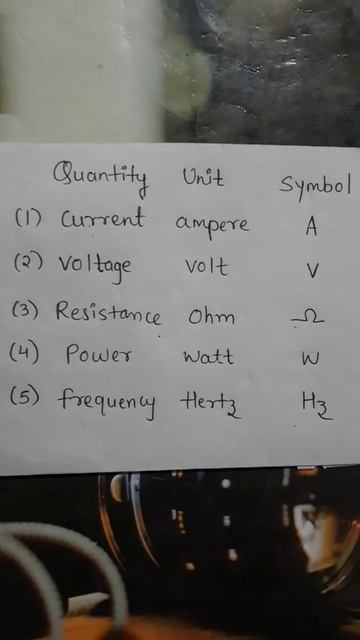 Quantity Unit Symbol
(1) Current ampere A
(2) Voltage volt V
(3) Resistance Ohm Ω
(4) Power Watt W
(5) frequency Hertz Hz